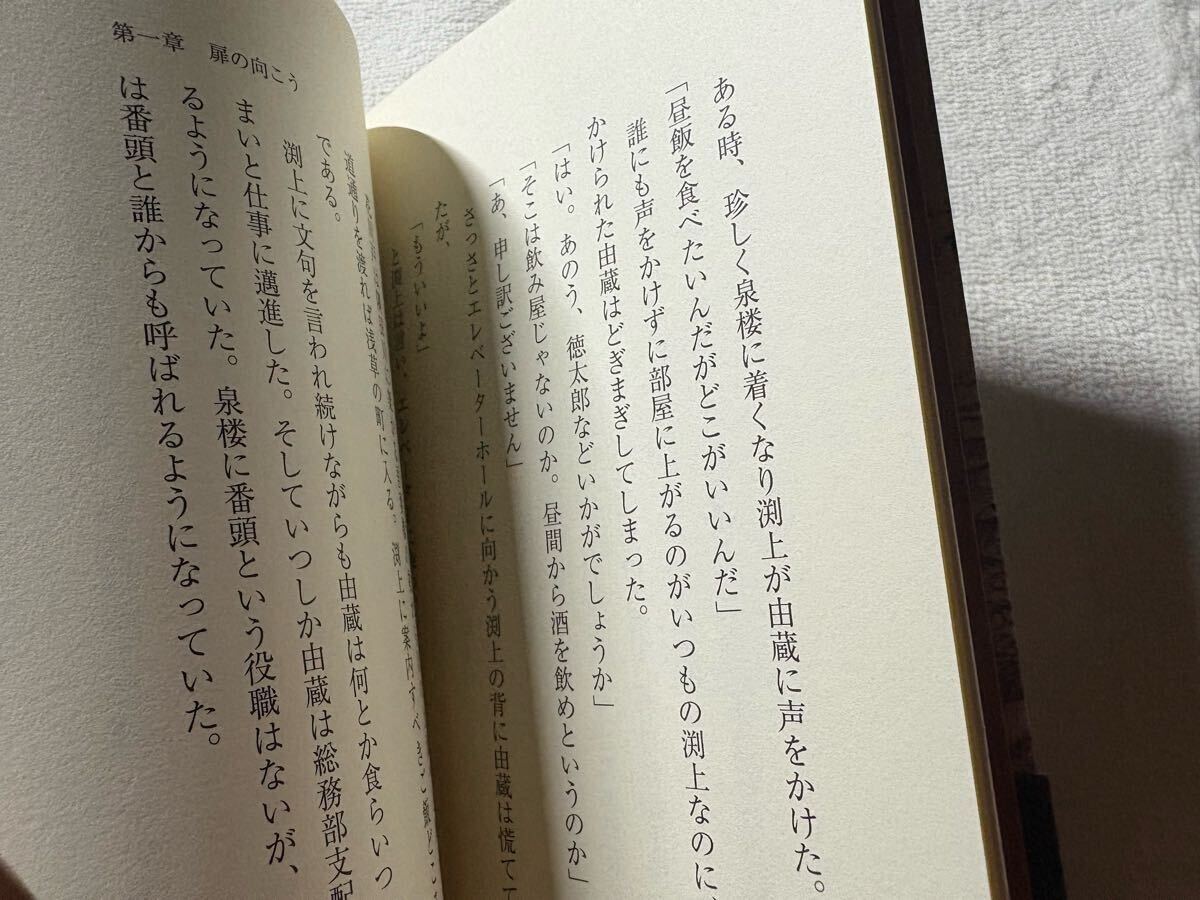 ある時、珍しく泉楼に着くなり渕上が由蔵に声をかけた。
「昼飯を食べたいんだがどこがいいんだ」
誰にも声をかけずに部屋に上がるのがいつもの渕上なのに、
かけられた由蔵はどぎまぎしてしまった。
「はい。あのう、徳太郎などいかがでしょうか」
「そこは飲み屋じゃないのか。昼間から酒を飲めというのか」
「あ、申し訳ございません」
さっさとエレベーターホールに向かう渕上の背に由蔵は慌てて
たが、
「もういいよ」
第一章 扉の向こう
道通りを渡れば浅草の町に入る。渕上に案内すべき
である。
渕上に文句を言われ続けながらも由蔵は何とか食らいつ
まいと仕事に邁進した。そしていつしか由蔵は総務部支配
るようになっていた。泉楼に番頭という役職はないが、
は番頭と誰からも呼ばれるようになっていた。